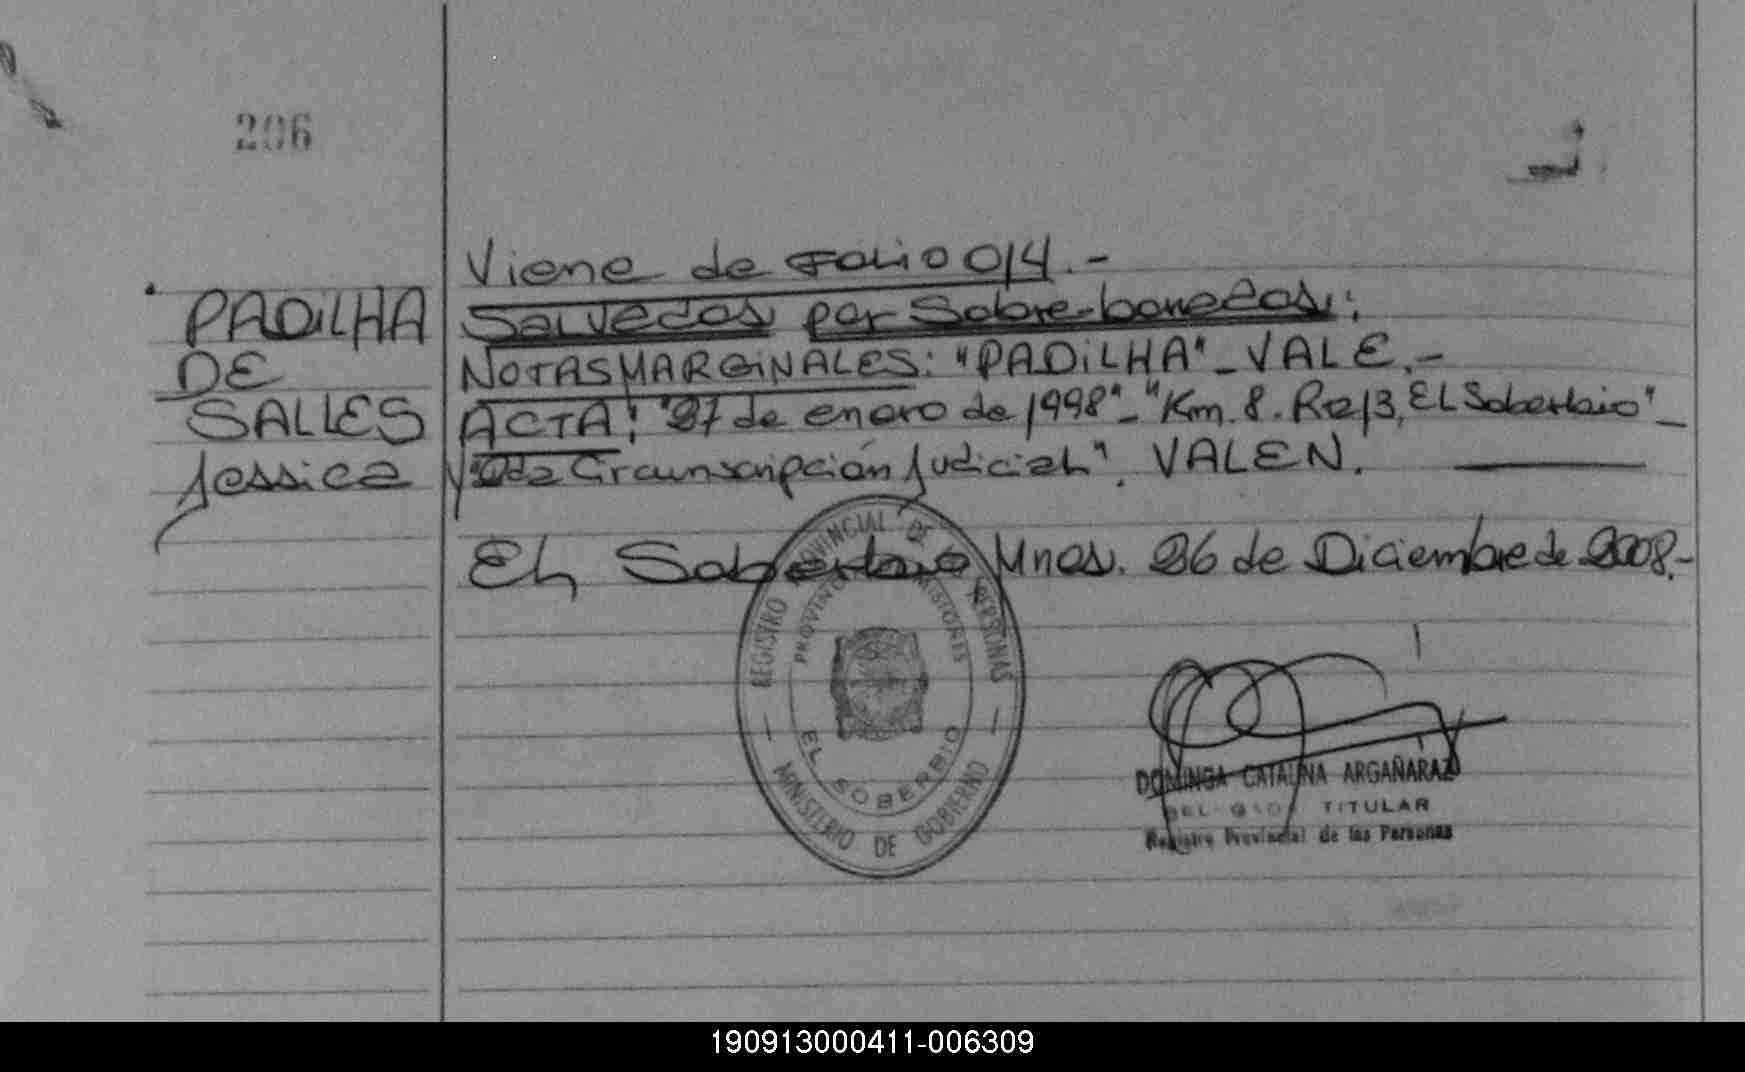 206
Viene de Folio 014.-
PADILHA
DE
SALLES
Jessica
Salvados por Sobre-borrados:
NOTAS MARGINALES: "PADILHA"_VALE.-
ACTA: "27 de enero de 1998"_"Km. 8. Ra 13, EL Soberbio"_
y "2da Circunscripción Judicial". VALEN.
EL Soberbio Mnes. 26 de Diciembre de 2008.-
REGISTRO PROVINCIAL DE PERSONAS
PROVINCIA MISIONES
EL SOBERBIO
MINISTERIO DE GOBIERNO
DOMINGA CATALINA ARGAÑARAZ
TITULAR
Registro Provincial de las Personas
190913000411-006309